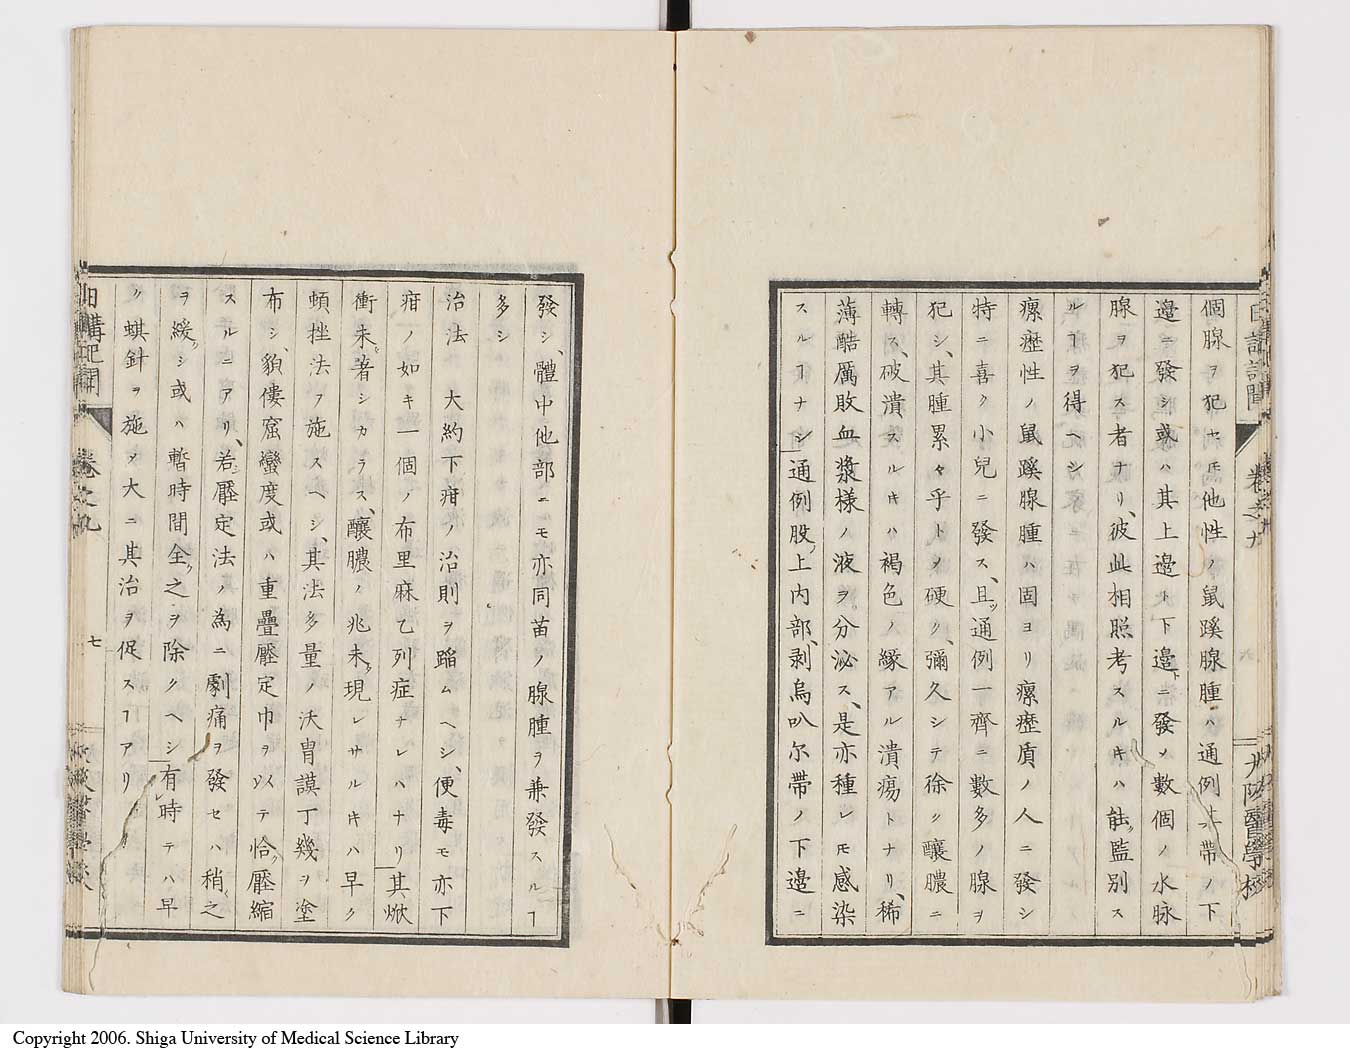 個腺ヲ犯セ𪜈他性ノ鼠蹊腺腫ハ通例上帶ノ下
邉ニ發シ或ハ其上邉ト下邉ニ發メ數個ノ水脉
腺ヲ犯ス者ナリ、彼此相照考スルキハ能ク監別ス
ルヿヲ得ヘシ
瘰癧性ノ鼠蹊腺腫ハ固ヨリ瘰癧質ノ人ニ發シ
特ニ喜ク小兒ニ發ス、且ツ通例一齊ニ數多ノ腺ヲ
犯シ、其腫累々乎トメ硬ク、彌久シテ徐ク釀膿ニ
轉ス、破潰スルキハ褐色ノ緣アル潰瘍トナリ、稀
薄酷厲敗血漿様ノ液ヲ分泌ス、是亦種レ𪜈感染
スルヿナシ 通例股ノ上内部、剥烏叭尔帶ノ下邉ニ
發シ、體中他部ニモ亦同苗ノ腺腫ヲ兼發スルヿ
多シ
治法 大約下疳ノ治則ヲ蹈ムヘシ、便毒モ亦下
疳ノ如キ一個ノ布里麻乙列症ナレハナリ 其焮
衝未タ著シカラス、釀膿ノ兆未タ現レサルキハ早ク
頓挫法ヲ施スヘシ、其法多量ノ沃胄謨丁幾ヲ塗
布シ、貌僂窟蠻度或ハ重疊壓定巾ヲ以テ恰ク壓縮
スルニアリ、若シ壓定法ノ為ニ劇痛ヲ發セハ稍ク之
ヲ緩シ或ハ暫時間全ク之ヲ除クヘシ 有時テハ早
ク蜞針ヲ施メ大ニ其治ヲ促スヿアリ
日講記聞
卷之九
七
卷之九
六
大阪醫學校
Copyright 2006. Shiga University of Medical Science Library